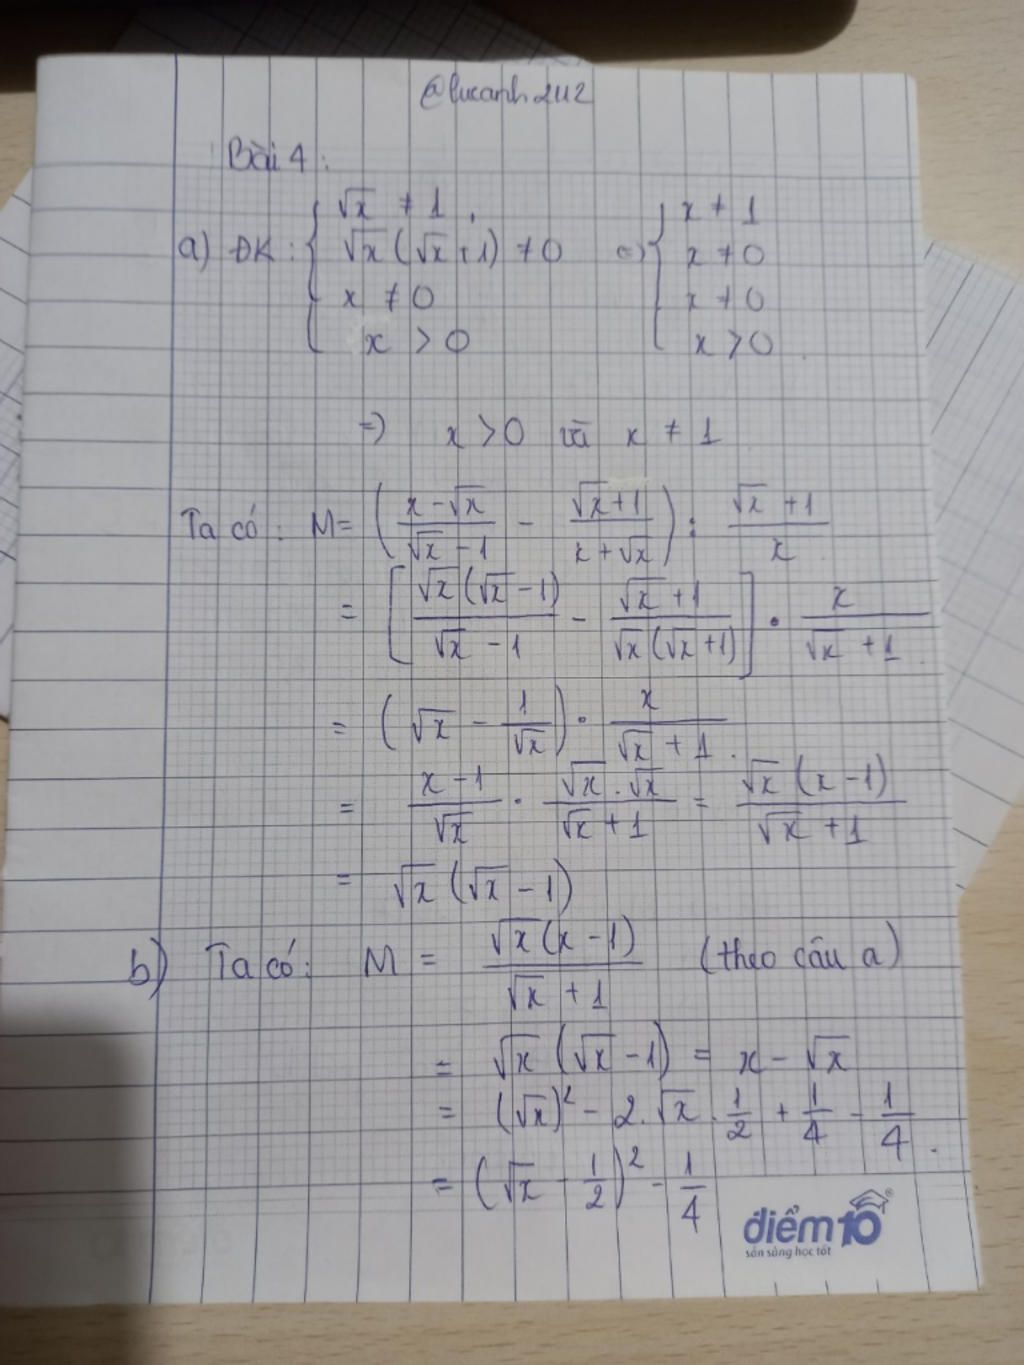 @lucanh2112
Bài 4:
a) ĐK: { √x ≠ 1, √x(√x+1) ≠ 0, x ≠ 0, x > 0 <=> { x ≠ 1, x ≠ 0, x ≠ 0, x > 0
=> x > 0 và x ≠ 1
Ta có: M = ( (x-√x)/(√x-1) - (√x+1)/(x+√x) ) : (√x+1)/x
= [ √x(√x-1)/(√x-1) - (√x+1)/(√x(√x+1)) ] · x/(√x+1)
= ( √x - 1/√x ) · x/(√x+1)
= (x-1)/√x · (√x.√x)/(√x+1) = √x(x-1)/(√x+1)
= √x(√x-1)
b) Ta có: M = √x(x-1)/(√x+1) (theo câu a)
= √x(√x-1) = x-√x
= (√x)² - 2.√x.1/2 + 1/4 - 1/4
= (√x - 1/2)² - 1/4
điểm10®
sẵn sàng học tốt